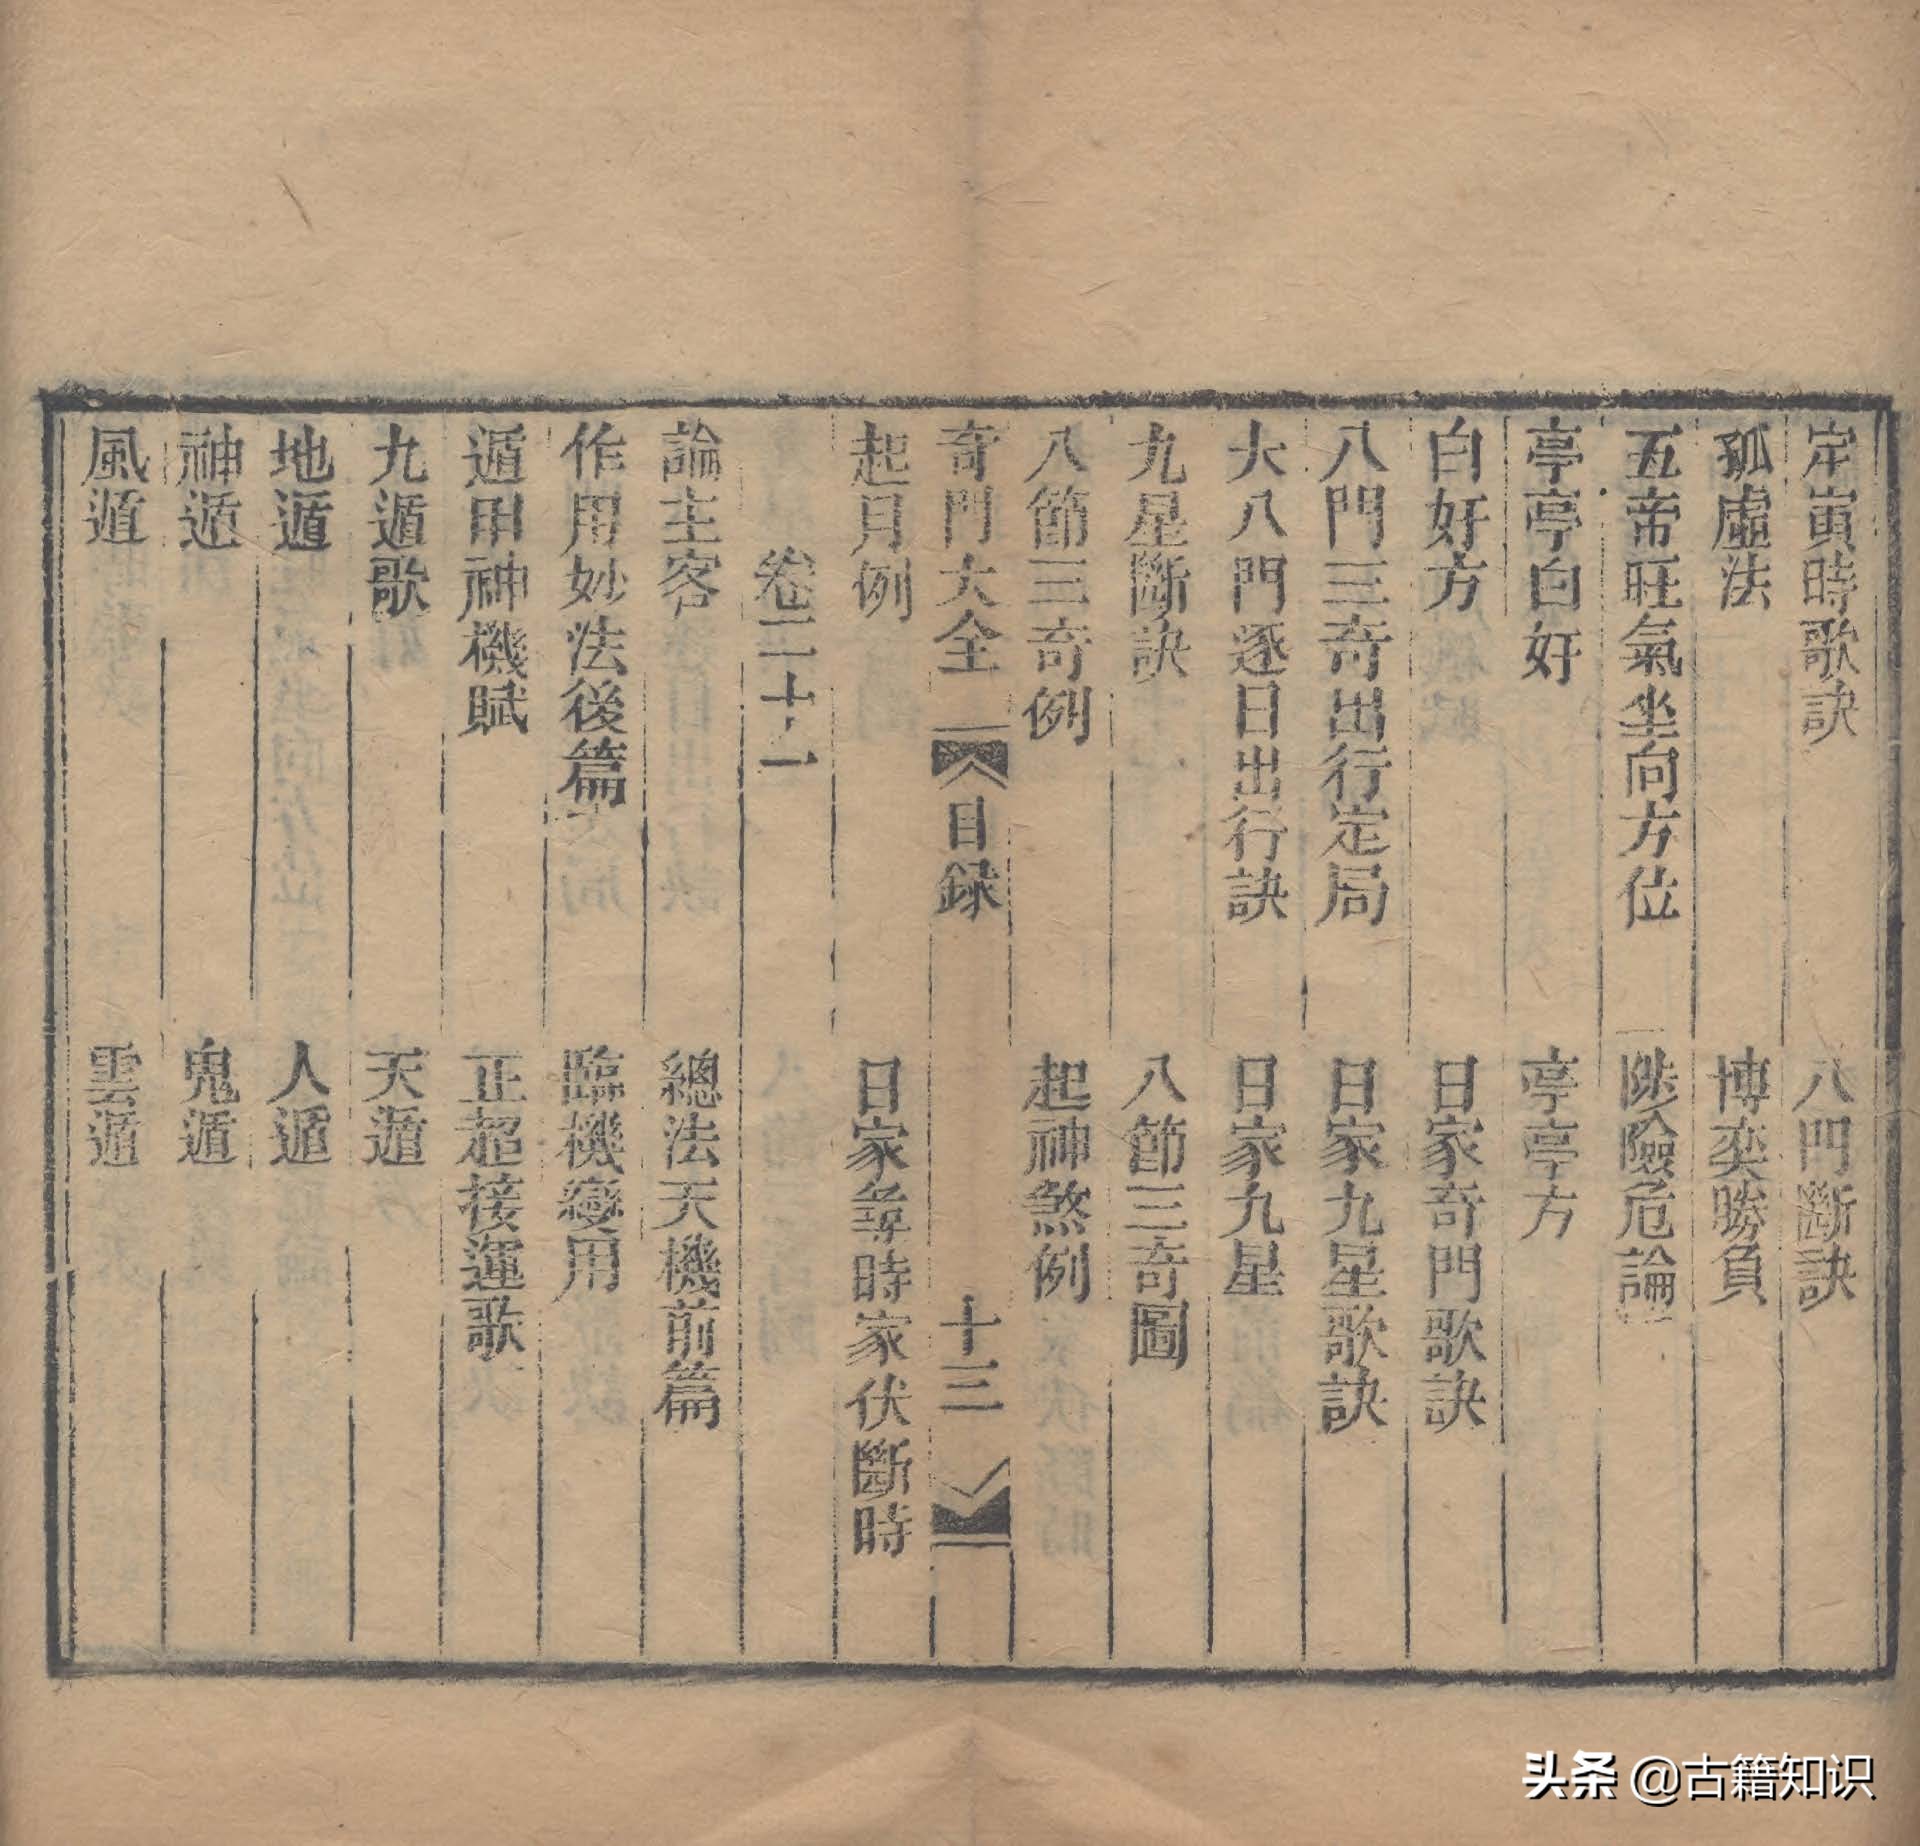 定寅時歌訣　八門斷訣
孤虛法　博奕勝負
五帝旺氣坐向方位　陟險危論
亭亭白奸　亭亭方
白奸方　日家奇門歌訣
八門三奇出行定局　日家九星歌訣
大八門逐日出行訣　日家九星
九星斷訣　八節三奇圖
八節三奇例　起神煞例
奇門大全　目錄　十三
起月例　日家尋時家伏斷時
卷二十二
論主客　總法天機前篇
作用妙法後篇　臨機變用
遁甲神機賦　正超接運歌
九遁歌　天遁
地遁　人遁
神遁　鬼遁
風遁　雲遁
头条 @古籍知识